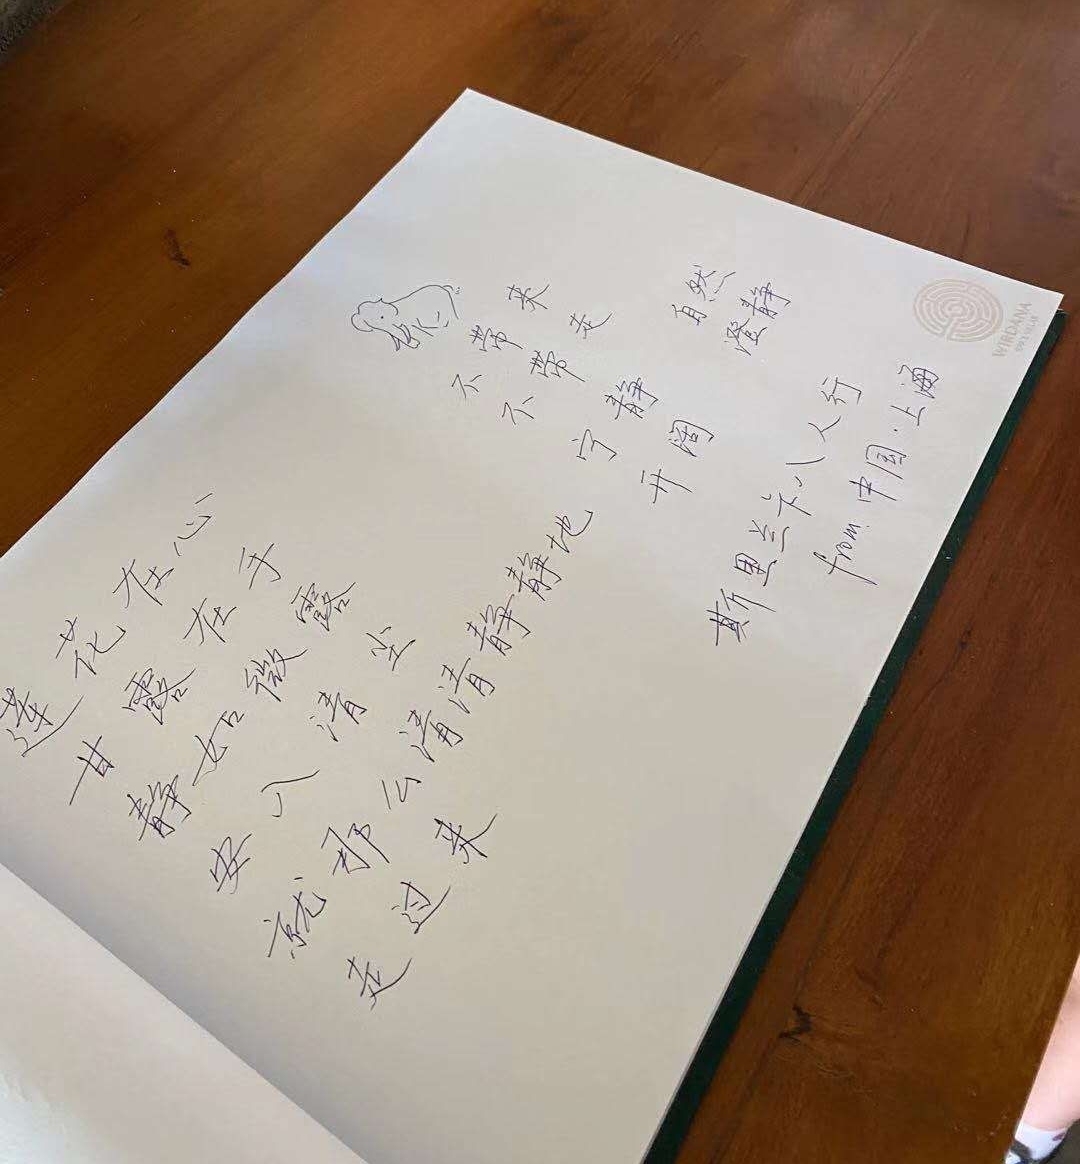 莲花在心
甘露在手
静如微露
安入清尘
就那么清清静静地
走过来
不带来
不带走
宁静
开阔
自然
澄静
斯里兰卡八人行
from 中国·上海
WIRDANA